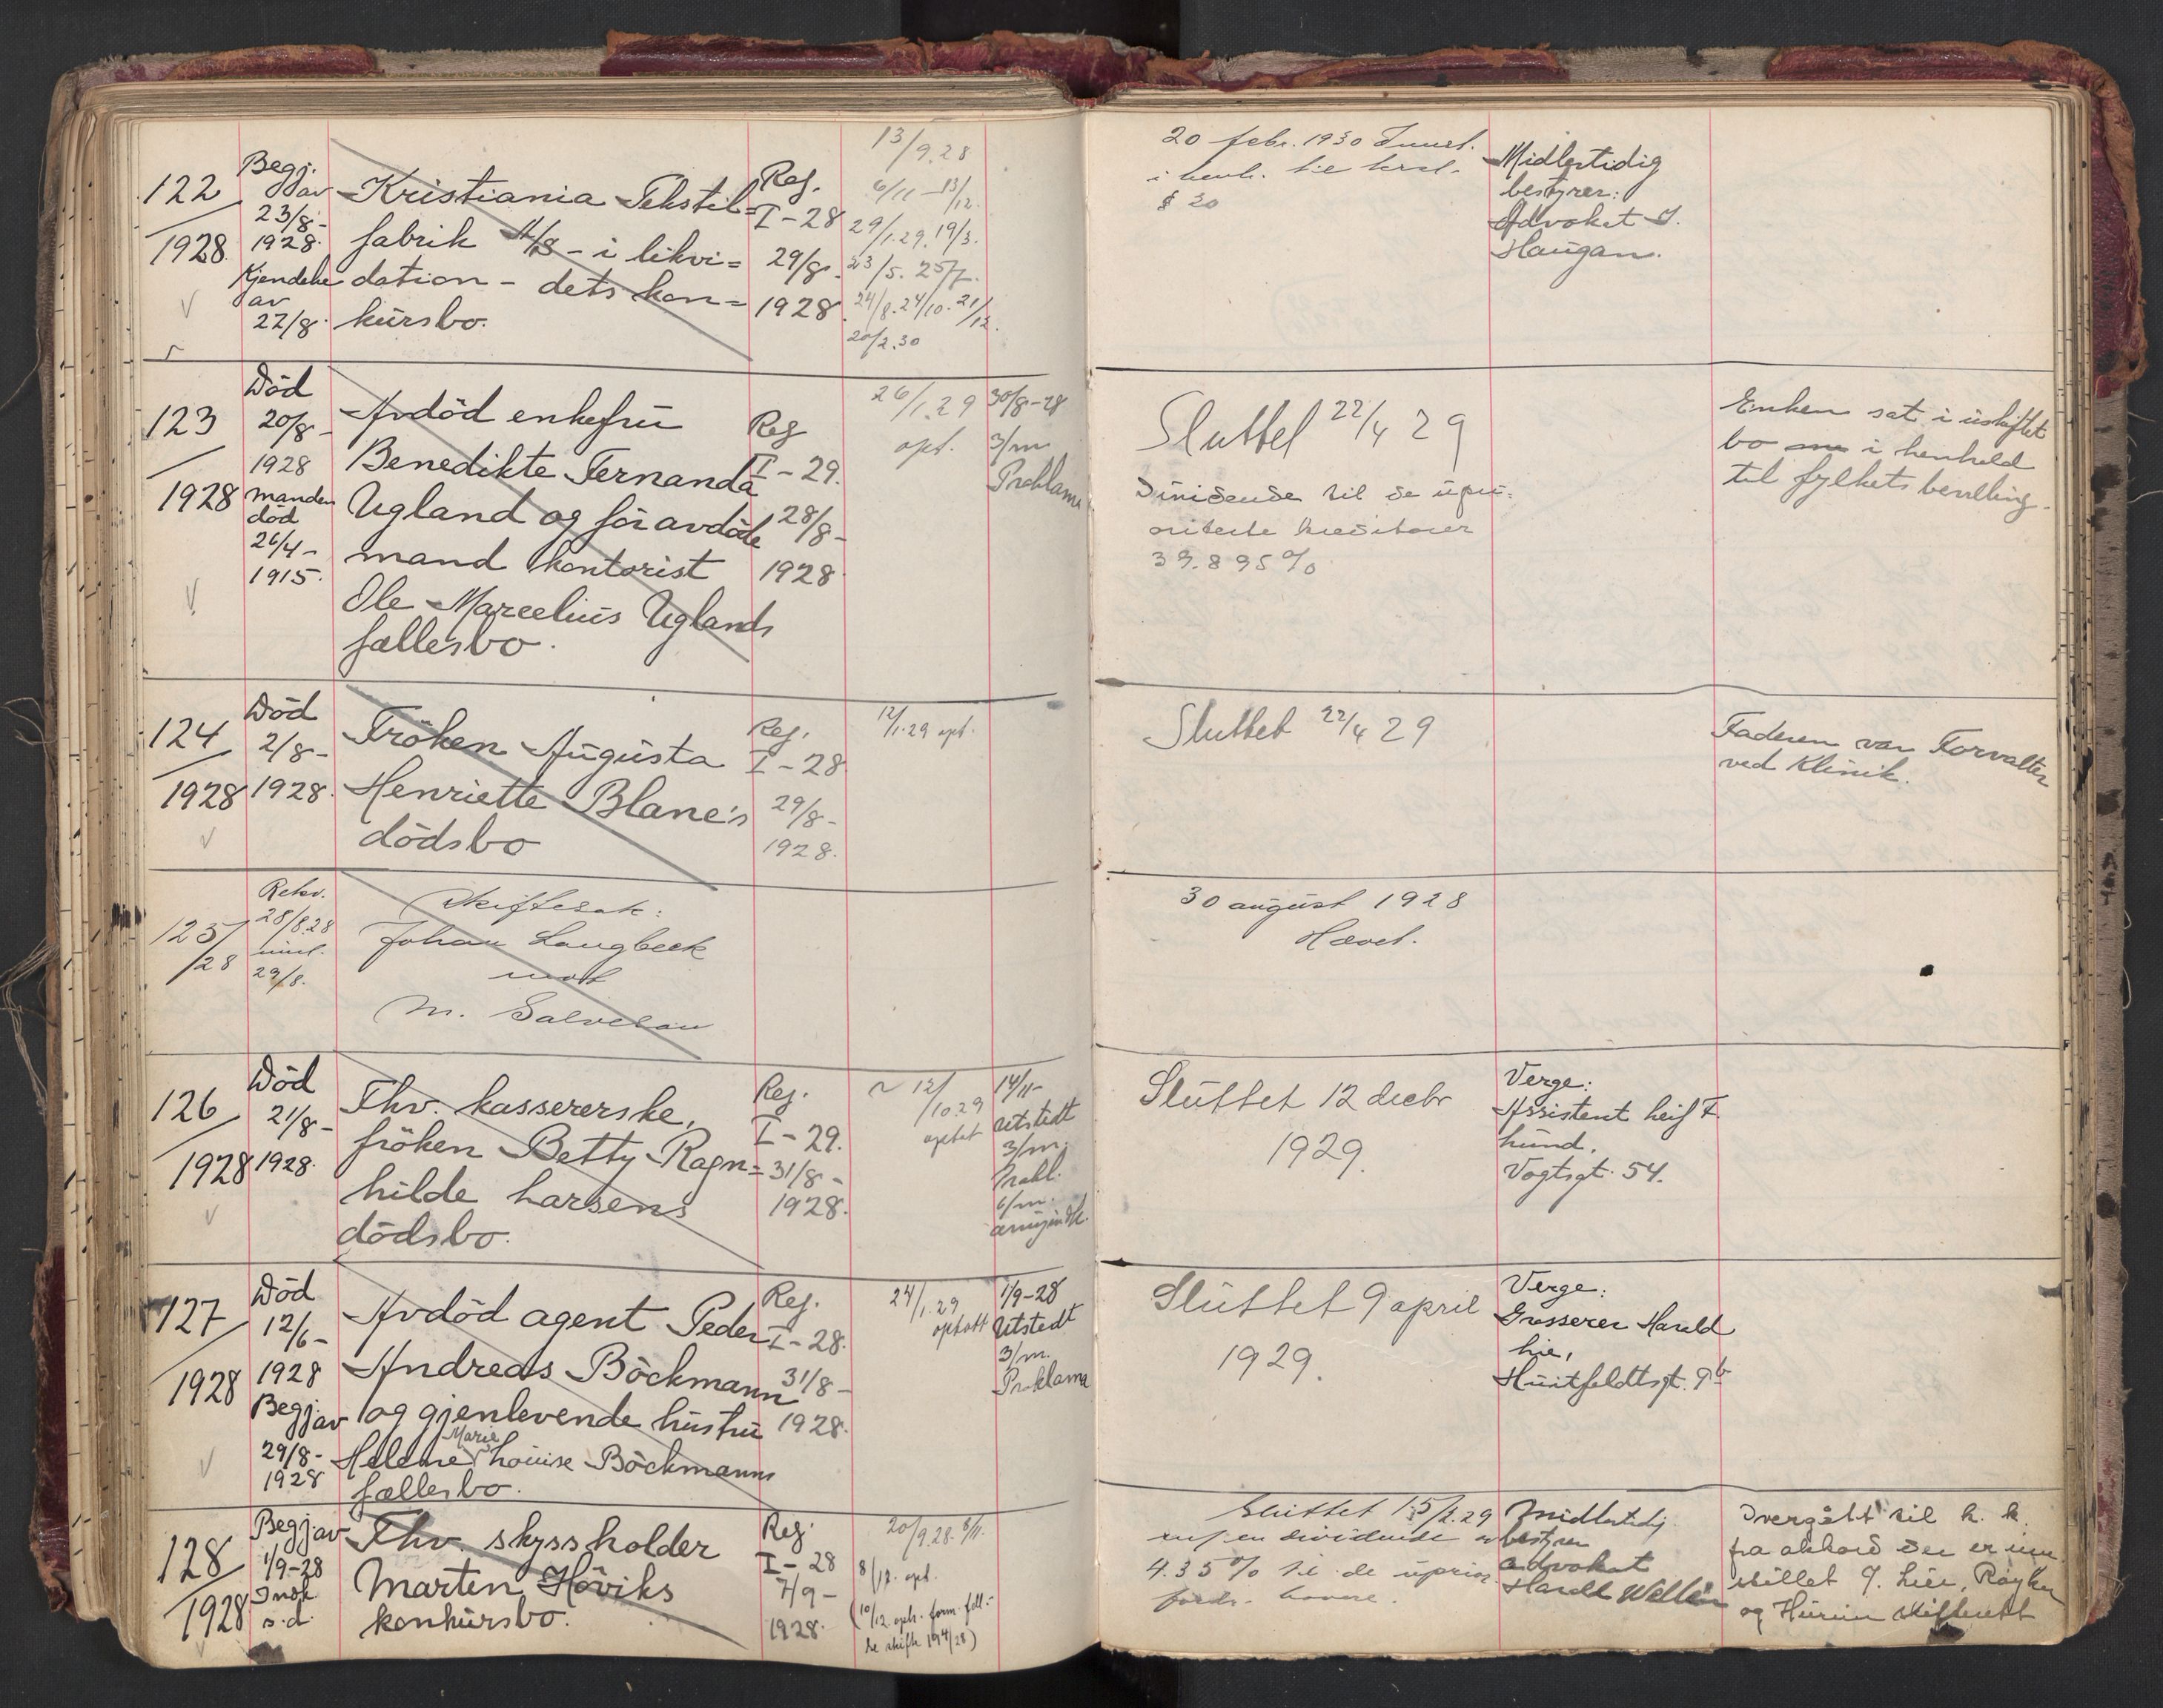 122
1928
Begj.
av
23/8-
1928.
Kjendelse
av
27/8.
Kristiania Tekstil=
fabrik A/S - i likvi=
dation - dets kon=
kursbo.
Reg.
I-28
29/8.
1928.
13/9.28
6/11 - 13/12.
29/1.29. 19/3.
23/5. 25/7.
24/8. 24/10. 21/12.
20/2.30
20 febr. 1930
i henh. til
§ 30
Midlertidig
bestyrer:
Advokat J.
Haugan.
123
1928
Död
20/8-
1928
manden
död
26/4-
1915.
Avdöd enkefru
Benedikte Fernanda
Ugland og föravdöde
mand kontorist
Ole Marcelius Uglands
fællesbo.
Reg
I-29.
28/8-
1928
26/1.29
opt.
30/8-28
3/m
Proklama
Sluttet 22/4 29
Dividende til de upri=
oriterte kreditorer
39.895%
Enken sat i uskiftet
bo i henhold
til fylkets bevilling.
124
1928
Död
2/8-
1928.
Fröken Augusta
Henriette Blane's
dödsbo
Reg.
I-28
29/8-
1928.
12/1.29 opt.
Sluttet 22/4 29
Faderen var Forvalter
ved Klinik.
125/28
Rekv.
28/8.28
29/8.
Skiftesak:
Johan Langbeck
mot
M. Salvesen
30 august 1928
Hævet.
126
1928
Död
21/8-
1928.
Fhv. kassererske,
fröken Betty Ragn=
hilde Larsens
dödsbo.
Reg.
I-29.
31/8-
1928.
12/10.29
optat
14/11-
Utstedt
3/m.
Prokl.
6/m.
Sluttet 12 decbr
1929.
Verge:
Assistent Leif F.
Lund,
Vogtsgt. 54.
127
1928
Död
12/6-
1928
Begj av
29/8-
1928
Avdöd agent Peder
Andreas Böckmann
og gjenlevende hustru
Marie
Helene Louise Böckmanns
fællesbo.
Reg.
I-28.
31/8-
1928.
24/1.29
optatt
1/9-28
Utstedt
3/m.
Proklama
Sluttet 9 april
1929.
Verge:
Grosserer Harald
Lie,
Huitfeldtsgt. 9b
128
1928
Begj av
1/9-28
s.d.
Fhv. skyssholder
Marten Höviks
konkursbo.
Reg.
I-28
7/9-
1928.
20/9.28.
8/12. opt.
(10/12 opt. form. fell.-
se skifte 194/28)
Sluttet 15/2.29
en dividende
4.35% til de uprior.
fordr. havere.
Midlertidig
bestyrer
advokat
Harald Wellén
Overgått til k. k.
fra akkord
og Hurum skifterett